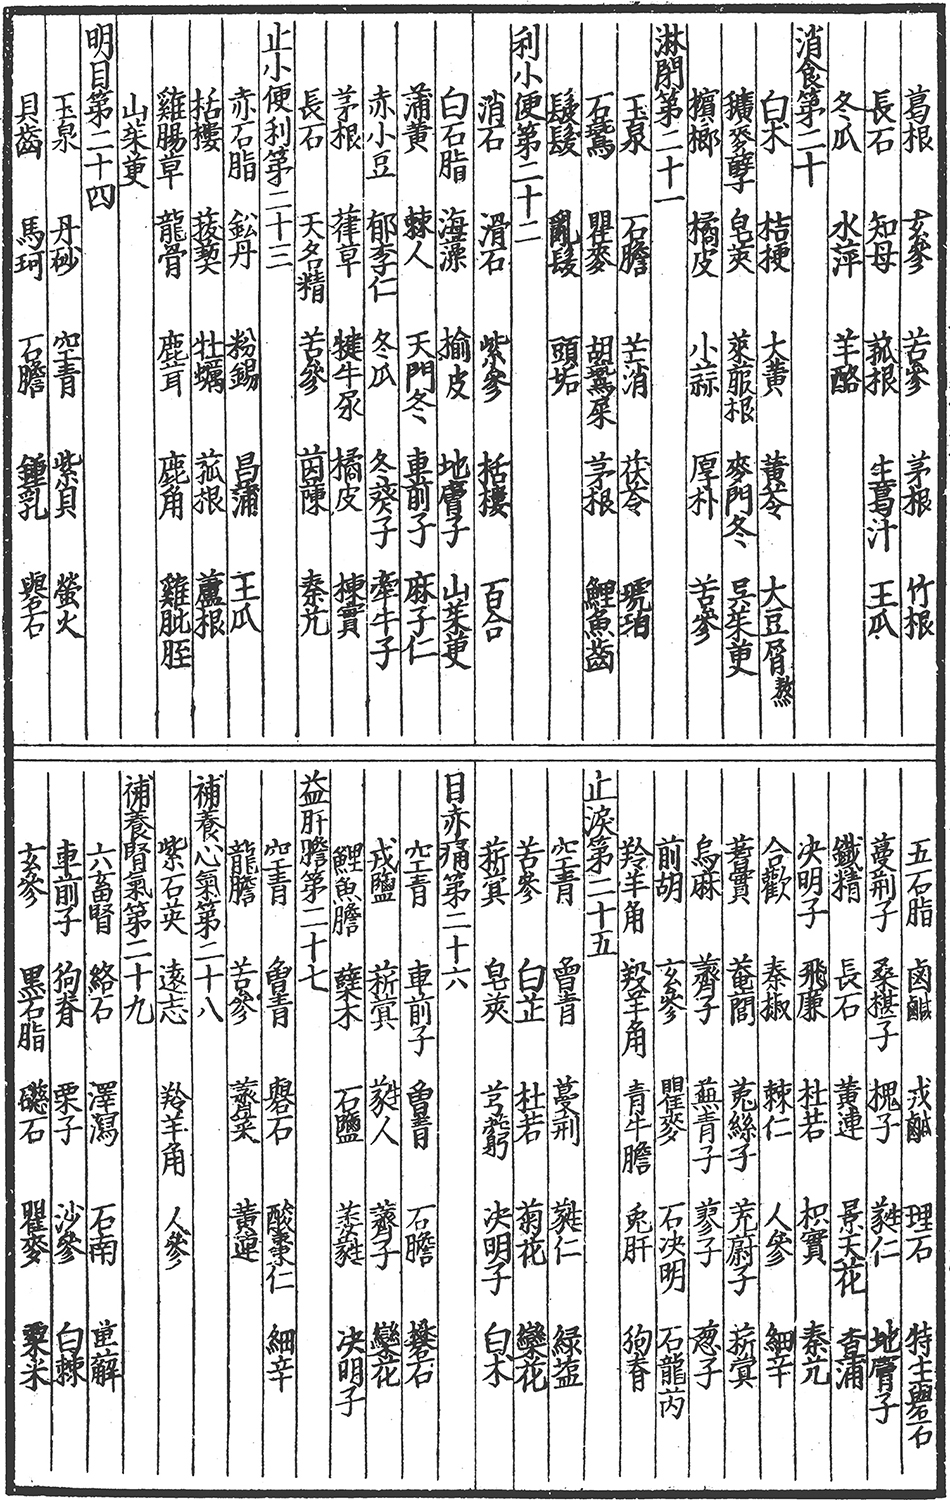 葛根 玄參 苦參 茅根 竹根
長石 知母 菰根 生葛汁 王瓜
冬瓜 水萍 羊酪
消食第二十
白朮 桔梗 大黃 黃芩 大豆屑熬
穬麥孽 皂莢 萊菔根 麥門冬 吴茱萸
檳榔 橘皮 小蒜 厚朴 苦參
淋閉第二十一
玉泉 石膽 芒消 茯苓 琥珀
石鷰 瞿麥 胡鷰屎 茅根 鯉魚齒
髮髲 亂髮 頭垢
利小便第二十二
消石 滑石 紫參 栝樓 百合
白石脂 海藻 揄皮 地膚子 山茱萸
蒲黃 棘人 天門冬 車前子 麻子仁
赤小豆 郁李仁 冬瓜 冬葵子 牽牛子
茅根 葎草 犍牛尿 橘皮 楝實
長石 天名精 苦參 茵蔯 秦艽
止小便利第二十三
赤石脂 鈆丹 粉錫 昌蒲 王瓜
栝樓 菝葜 牡蠣 菰根 蘆根
雞腸草 龍骨 鹿茸 鹿角 雞肶胵
山茱萸
明目第二十四
玉泉 丹砂 空青 紫貝 螢火
貝齒 馬珂 石膽 鍾乳 礜石
五石脂 鹵鹹 戎鹹 理石 特生礜石
蔓荆子 桑椹子 槐子 蕤仁 地膚子
鐵精 長石 黃連 景天花 昌蒲
决明子 飛廉 杜若 枳實 秦艽
合歡 秦椒 棘仁 人參 細辛
蓍實 菴閭 菟絲子 茺蔚子 菥蓂
烏麻 薺子 蕪青子 蓼子 葱子
前胡 玄參 瞿麥 石决明 石龍芮
羚羊角 羖羊角 青牛膽 兎肝 狗脊
止淚第二十五
空青 曾青 蔓荆 蕤仁 緑塩
苦參 白芷 杜若 菊花 欒花
菥蓂 皂莢 芎藭 决明子 白朮
目赤痛第二十六
空青 車前子 曾青 石膽 礬石
戎鹽 菥蓂 蕤人 薺子 欒花
鯉魚膽 蘗木 石鹽 萎蕤 决明子
益肝膽第二十七
空青 曾青 礬石 酸棗仁 細辛
龍膽 苦參 蒺藜 黃連
補養心氣第二十八
紫石英 遠志 羚羊角 人參
補養腎氣第二十九
六畜腎 絡石 澤瀉 石南 萆薢
車前子 狗脊 栗子 沙參 白棘
玄參 黒石脂 礠石 瞿麥 粟米